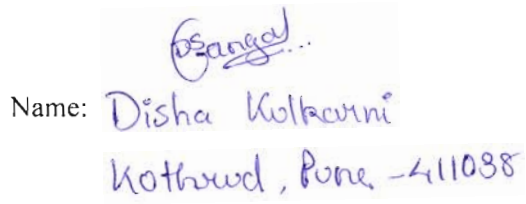 Name: Disha Kulkarni
Kothrud, Pune -411038